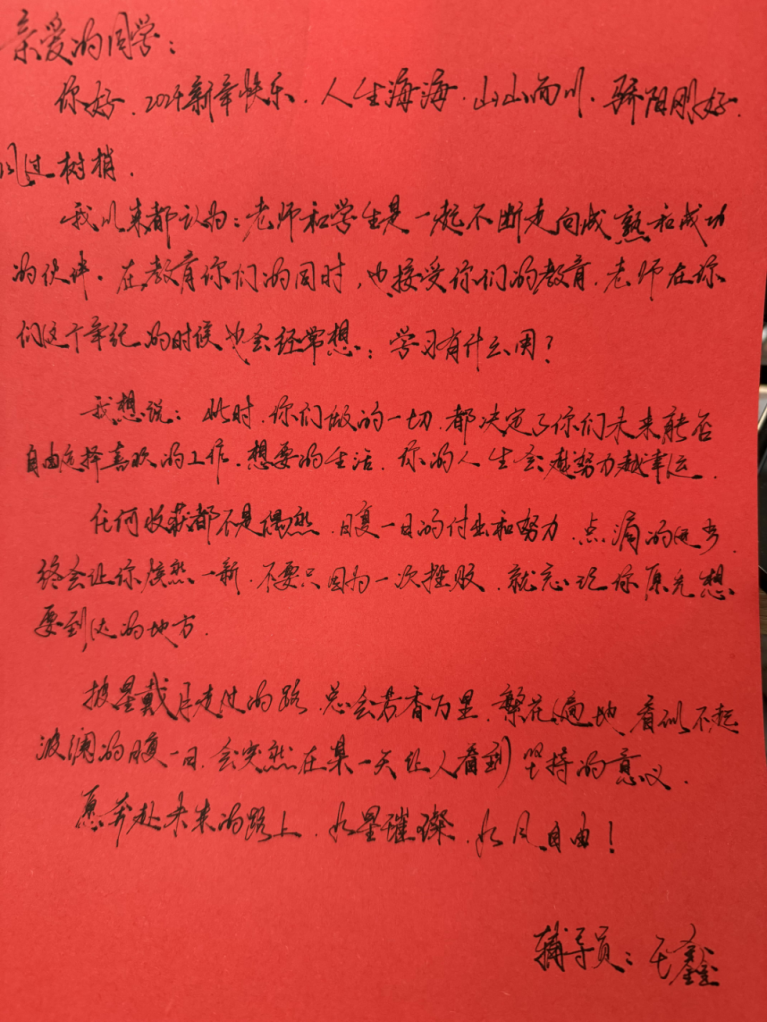 亲爱的同学：
你好，2024新年快乐，人生海海，山山而川，骄阳刚好，
风过树梢。
我以来都认为：老师和学生是一起不断走向成熟和成功
的伙伴。在教育你们的同时，也接受你们的教育，老师在你
们这个年纪的时候也会经常想：学习有什么用？
我想说：此时，你们做的一切，都决定了你们未来能否
自由选择喜欢的工作，想要的生活，你的人生会越努力越幸运。
任何收获都不是偶然，日复一日的付出和努力，点滴的进步，
终会让你焕然一新，不要只因为一次挫败，就忘记你原先想
要到达的地方。
披星戴月走过的路，总会芳香万里，繁花遍地，看似不起
波澜的日复一日，会突然在某一天让人看到坚持的意义。
愿奔赴未来的路上，如星璀璨，如风自由！
辅导员：王鑫